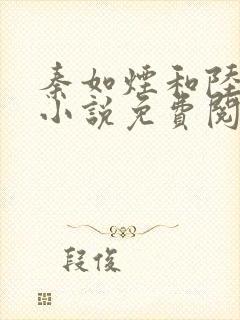 秦如煙和陸
小說免費閱
段俊